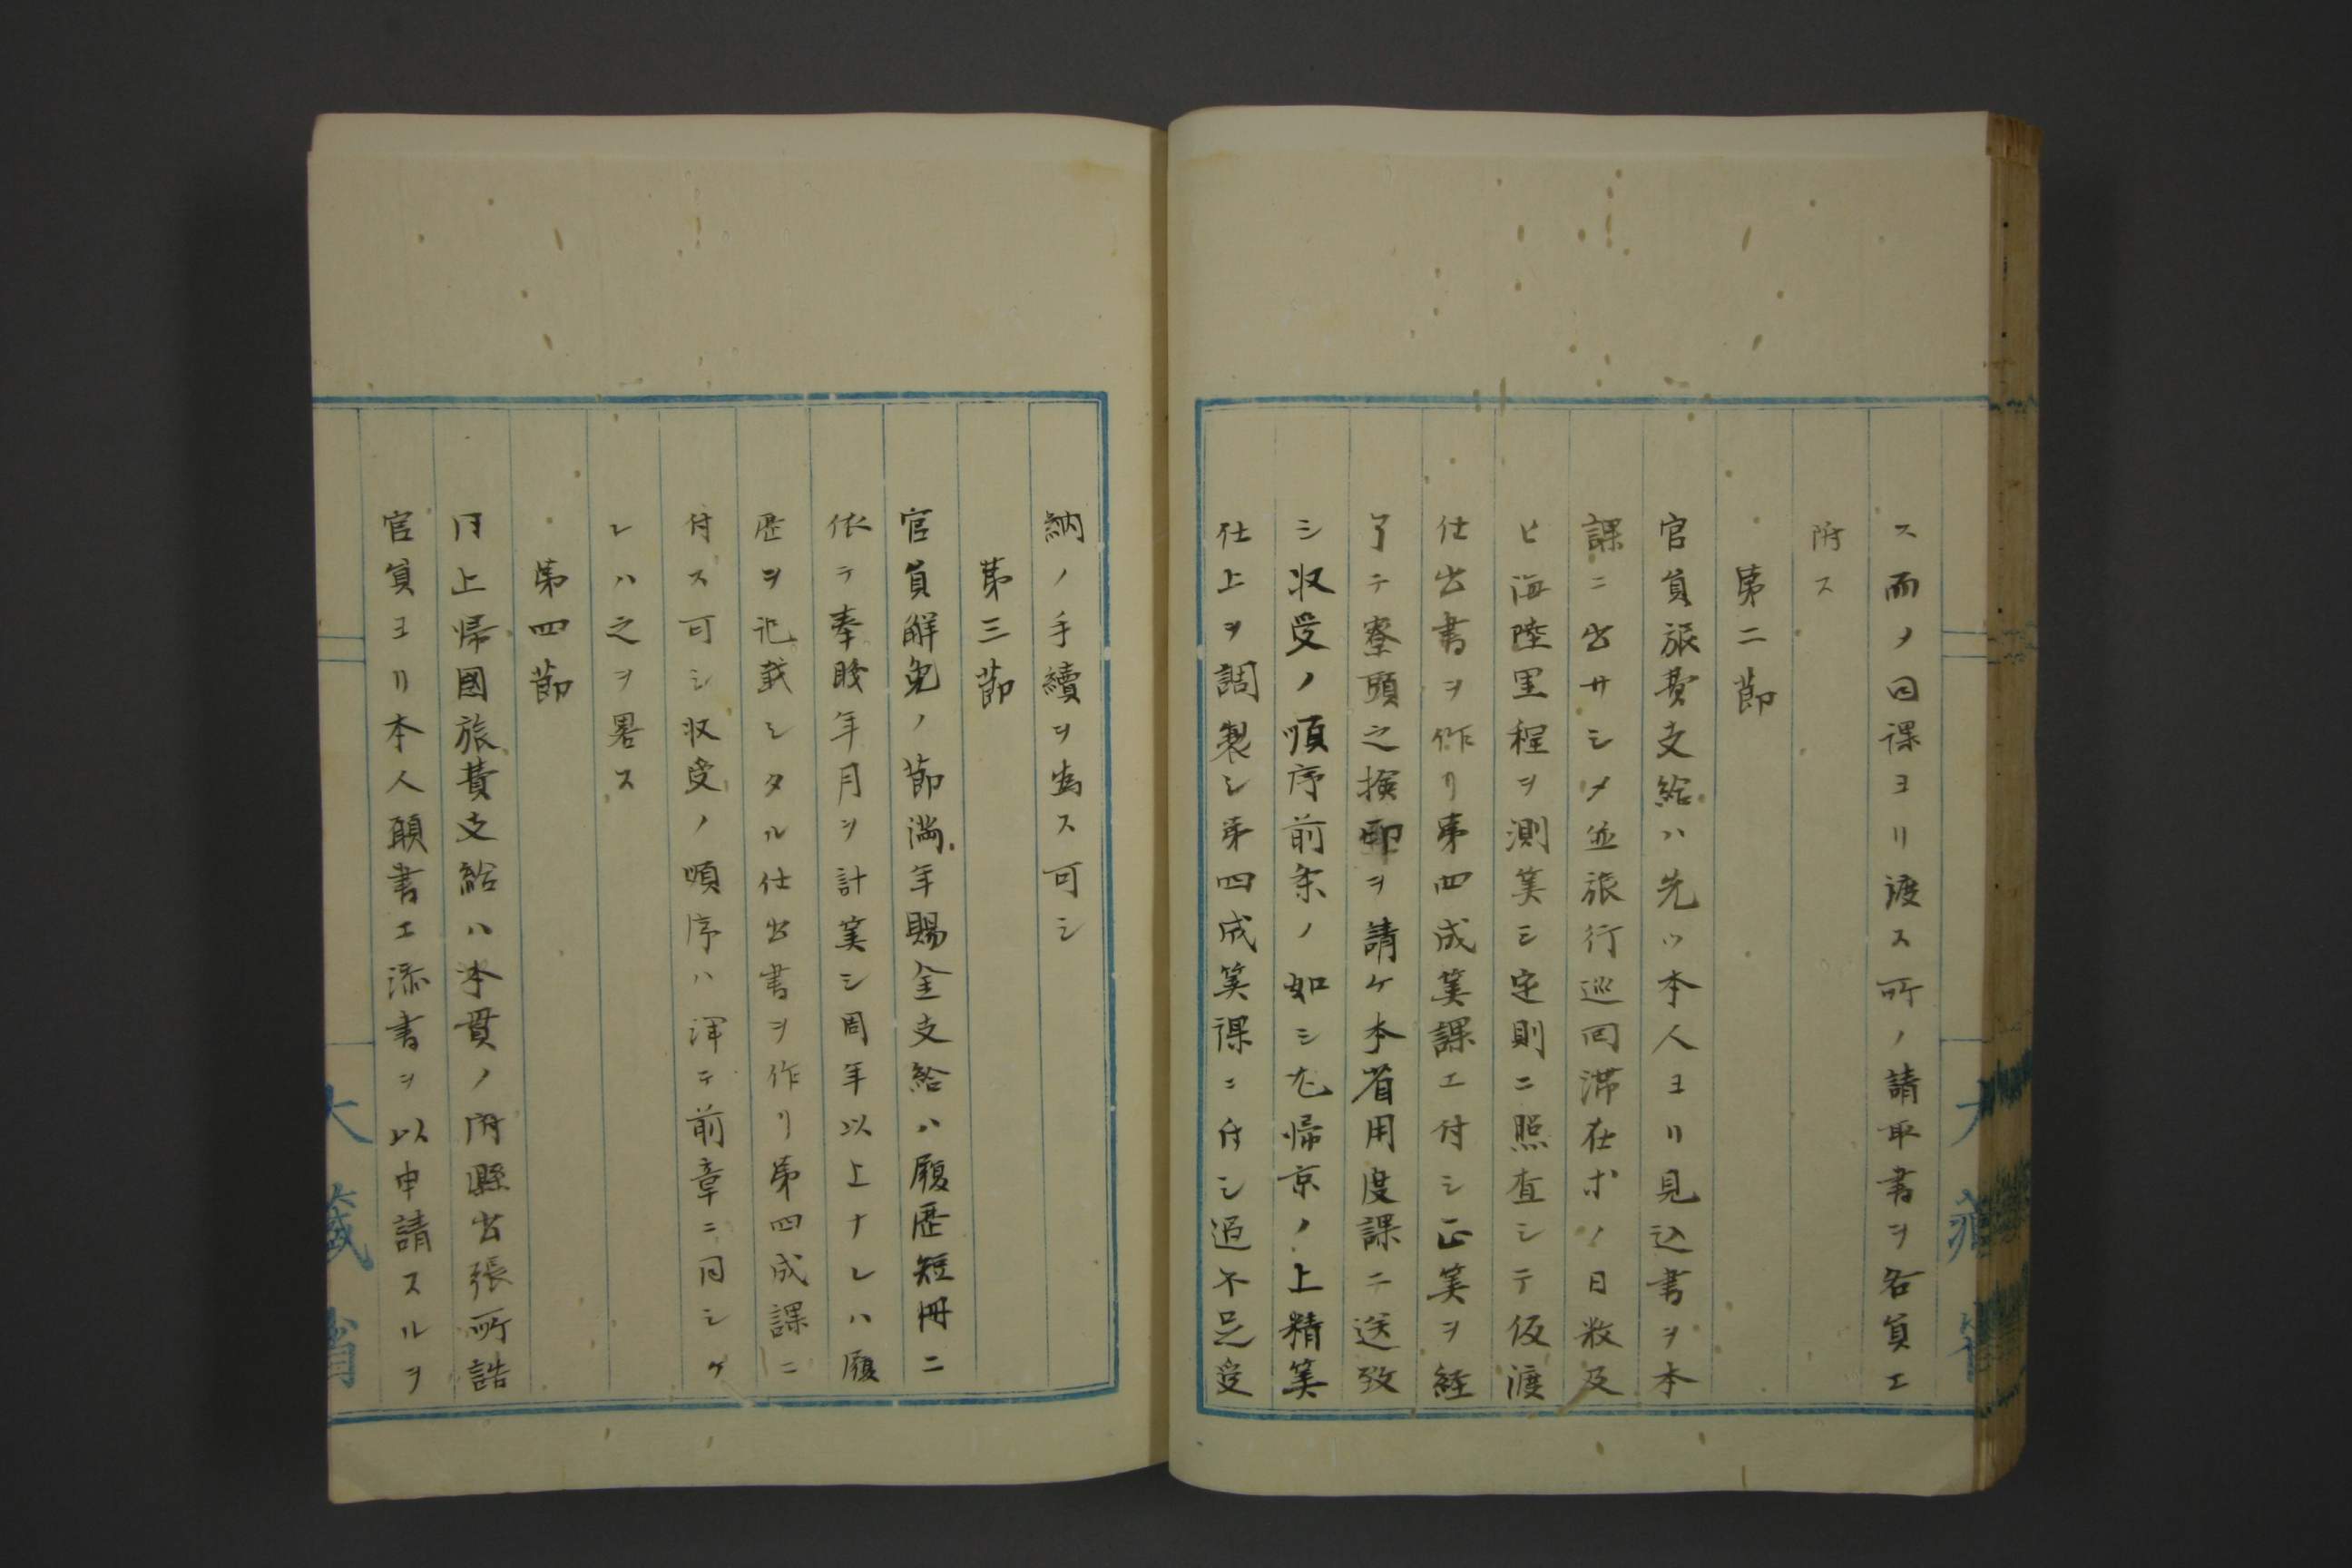 ス而ノ同課ヨリ渡ス所ノ請取書ヲ各員エ
附ス
第二節
官員旅費支給ハ先ツ本人ヨリ見込書ヲ本
課ニ出サシメ並旅行巡回滞在ホノ日数及
ヒ海陸里程ヲ測筭シ定則ニ照査シテ仮渡
仕出書ヲ作リ第四成筭課エ付シ正筭ヲ経
了テ寮頭之撿印ヲ請ケ本省用度課ニ送致
シ収受ノ順序前条ノ如シ尤帰京ノ上精筭
仕上ヲ調製シ第四成筭課ニ付シ過不足受
納ノ手續ヲ為ス可シ
第三節
官員解免ノ節満年賜金支給ハ履歴短冊ニ
依テ奉職年月ヲ計筭シ周年以上ナレハ履
歴ヲ記載シタル仕出書ヲ作リ第四成課ニ
付ス可シ収受ノ順序ハ渾テ前章ニ同シケ
レハ之ヲ畧ス
第四節
同上帰國旅費支給ハ本貫ノ府縣出張所詰
官員ヨリ本人願書エ添書ヲ以申請スルヲ
大藏省